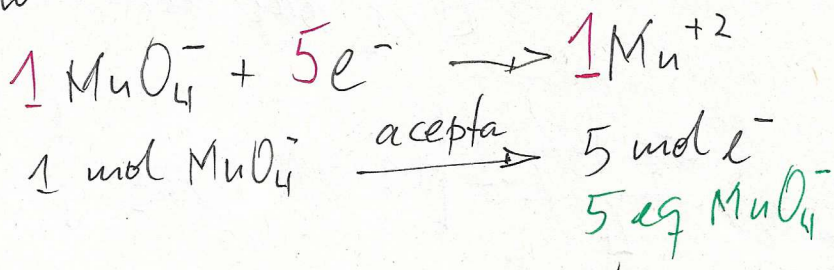 1 MnO₄⁻ + 5e⁻ → 1Mn⁺²
1 mol MnO₄⁻ acepta → 5 mol e⁻
5 eq MnO₄⁻